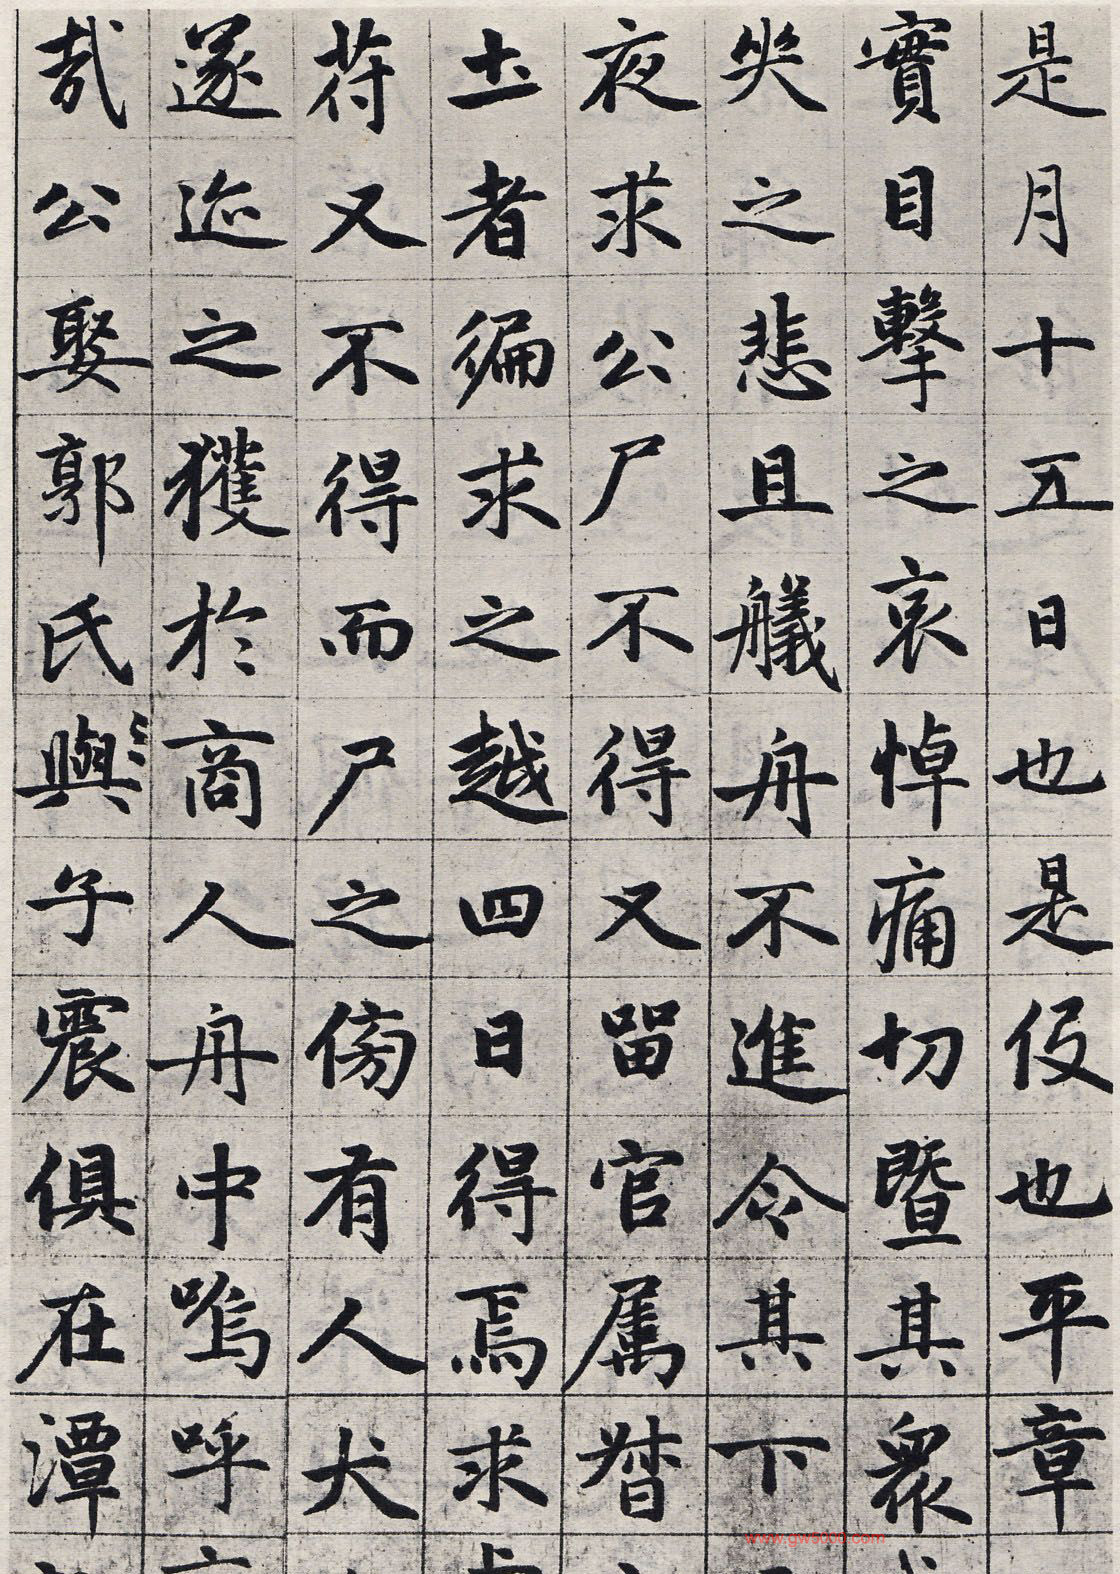 是月十五日也是伇也平章
實目擊之哀悼痛切暨其衆
失之悲且艤舟不進令其下
夜求公尸不得又留官属督
土者徧求之越四日得焉求
苻又不得而尸之傍有人犬
遂迹之獲於商人舟中嗚呼
㢤公娶郭氏與子震俱在潭
www.gw5000.com